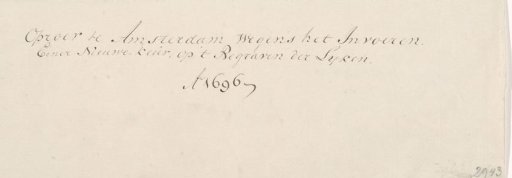 Oproer te Amsterdam wegens het Invoeren.
Einer Nieuwe keur, op 't Begraven der Lijken.
A° 1696
2943